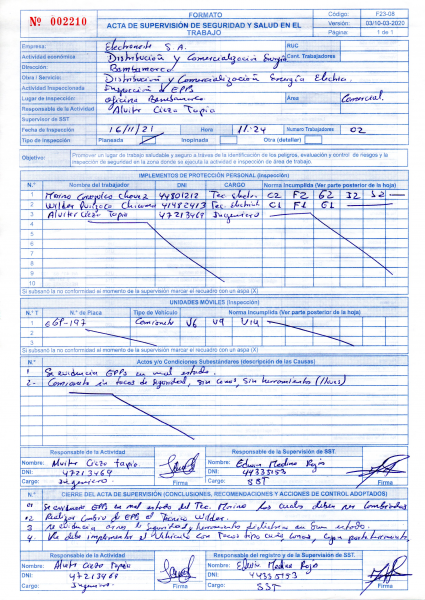 Nº 002210
FORMATO
ACTA DE SUPERVISIÓN DE SEGURIDAD Y SALUD EN EL TRABAJO
Código: F23-08
Versión: 03/10-03-2020
Página: 1 de 1
Empresa: Electronorte S A. RUC
Actividad económica Distribución y Comercialización Energía Cant. Trabajadores
Dirección: Bambamarca
Obra / Servicio: Distribución y Comercialización Energía Electrica.
Actividad Inspeccionada Inspección de EPPS
Lugar de Inspección: oficina Bambamarca Área Comercial.
Responsable de la Actividad Alviter Cieza Tapia
Supervisor de SST
Fecha de Inspección 16/11/21 Hora 11:24 Numero Trabajadores 02
Tipo de Inspección: Planeada Inopinada Otra (detallar)
Objetivo: Promover un lugar de trabajo saludable y seguro a través de la identificación de los peligros, evaluación y control de riesgos y la inspección de seguridad en la zona donde se ejecuta la actividad e inspección de área de trabajo.
IMPLEMENTOS DE PROTECCIÓN PERSONAL (Inspección)
N.° Nombres del trabajador DNI CARGO Norma Incumplida (Ver parte posterior de la hoja)
1 Marino Chavez 44801212 Tec. C2 F2 G2
2 Wilder 41482413 Tec. C1 F1 G1
3 Alviter Cieza Tapia 47213469 Ingeniero
4
5
6
7
8
9
10
Si subsanó la no conformidad al momento de la supervisión marcar el recuadro con un aspa (X)
UNIDADES MÓVILES (Inspección)
N.° T N.° de Placa Tipo de Vehículo Norma Incumplida (Ver parte posterior de la hoja)
1 EGP-197 Camioneta V6 V9 V14
2
3
Si subsanó la no conformidad al momento de la supervisión marcar el recuadro con un aspa (X)
N.° Actos y/o Condiciones Subestándares (descripción de las Causas)
1 Se evidencia EPPs en mal estado.
2- Camioneta sin tacos de seguridad, sin conos, sin herramientas
Responsable de la Actividad
Nombre: Alviter Cieza Tapia
DNI: 47213469
Cargo: Ingeniero
Firma
Responsable de la Supervisión de SST.
Nombre: Medina Rojas
DNI: 44335153
Cargo: SST
Firma
N.° CIERRE DEL ACTA DE SUPERVISIÓN (CONCLUSIONES, RECOMENDACIONES Y ACCIONES DE CONTROL ADOPTADOS)
01 Se evidencia EPPs en mal estado del Tec. Marino los cuales deben ser Cambiados
02 Realizar Cambio de EPPs al Técnico Wilder.
3 en buen estado.
4 implementar el Vehículo con Tacos tipo cuña, conos,
Responsable de la Actividad
Nombre: Alviter Cieza Tapia
DNI: 47213469
Cargo: Ingeniero
Firma
Responsable del registro y de la Supervisión de SST.
Nombre: Medina Rojas
DNI: 44335153
Cargo: SST
Firma